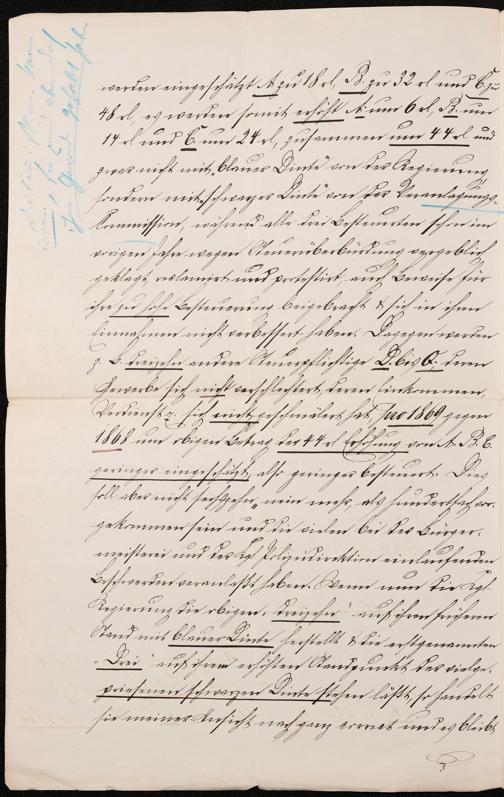 werden eingeschätzt A. zu 18 rl, B. zu 32 rl und C. zu
48 rl, es werden somit erhöht A. um 6 rl, B. um
14 rl und C. um 24 rl, zusammen um 44 rl und
zwar nicht mit blauer Dinte von der Regierung
sondern mit schwarzer Dinte von der Veranlagungs-
Kommission, während alle drei Besteuerten schon im
vorigen Jahr wegen Steuerüberbürdung vergeblich
geklagt, reclamirt und protestirt, auch Beweise für
ihre zu hohe Besteuerung beigebracht & sich in ihren
Einnahmen nicht verbessert haben. Dagegen werden
z. B. dreizehn andere Steuerpflichtige D. bis Q. deren
Gewerbe sich nicht verschlechtert, deren Einkommen,
Verdienst sich nicht geschmälert hat, pro 1869 gegen
1868 um obigen Betrag der 44 rl Erhöhung von A. B. C.
geringer eingeschätzt, also geringer besteuert. Dies
soll aber nicht sechszehn, nein mehr als hundertfach vor-
gekommen sein und die vielen bei der Bürger-
meisterei und der Kgl. Polizeidirektion einlaufenden
Beschwerden veranlaßt haben. Wenn nun die Kgl.
Regierung die obigen "dreizehn" auf ihren früheren
Stand mit blauer Dinte herstellt & die erstgenannten
"Drei" auf ihrem erhöhten Standpunkt der vielge-
priesenen schwarzen Dinte stehen läßt, so handelt
sie meiner Ansicht nach ganz correct und es bleibt